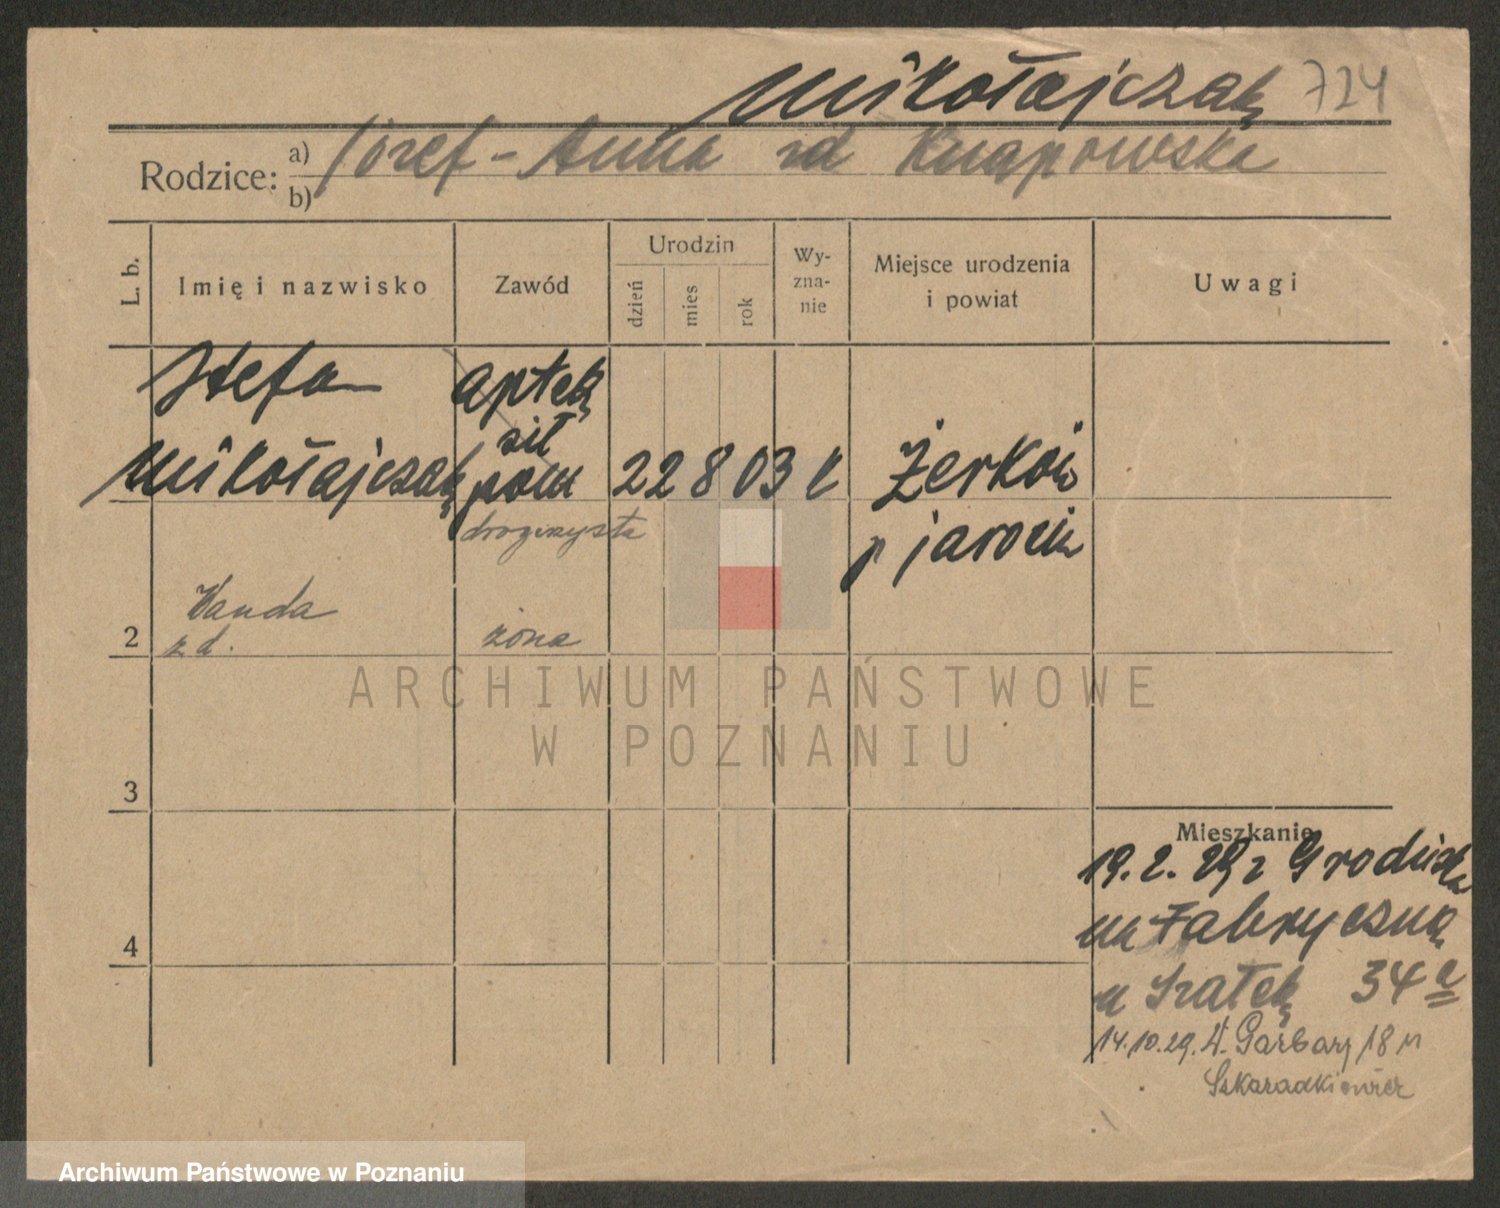 Mikołajczak 724
Rodzice: a) Józef - Anna zd Knapowska
b)
L. b.
Imię i nazwisko
Zawód
Urodzin
dzień
mies
rok
Wy-
zna-
nie
Miejsce urodzenia
i powiat
Uwagi
Stefan
Mikołajczak
aptek
sił
pom
drogerzysta
22 8 03 k
Żerków
p jarocin
2
Wanda
z d.
żona
3
4
Mieszkanie
19.2.29 z Grodziska
na Fabryczną
u Szatek 34a
14.10.29. W. Garbary 18
Szkaradkiewicz
ARCHIWUM PAŃSTWOWE
W POZNANIU
Archiwum Państwowe w Poznaniu